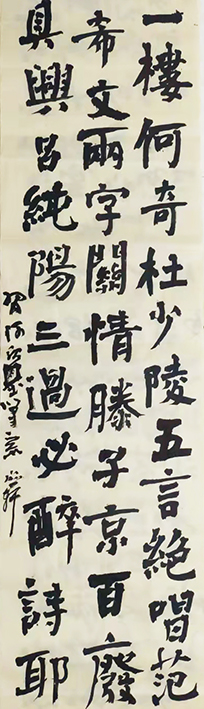 一樓何奇杜少陵五言絕唱范
希文兩字關情滕子京百廢
具興呂純陽三過必醉詩耶